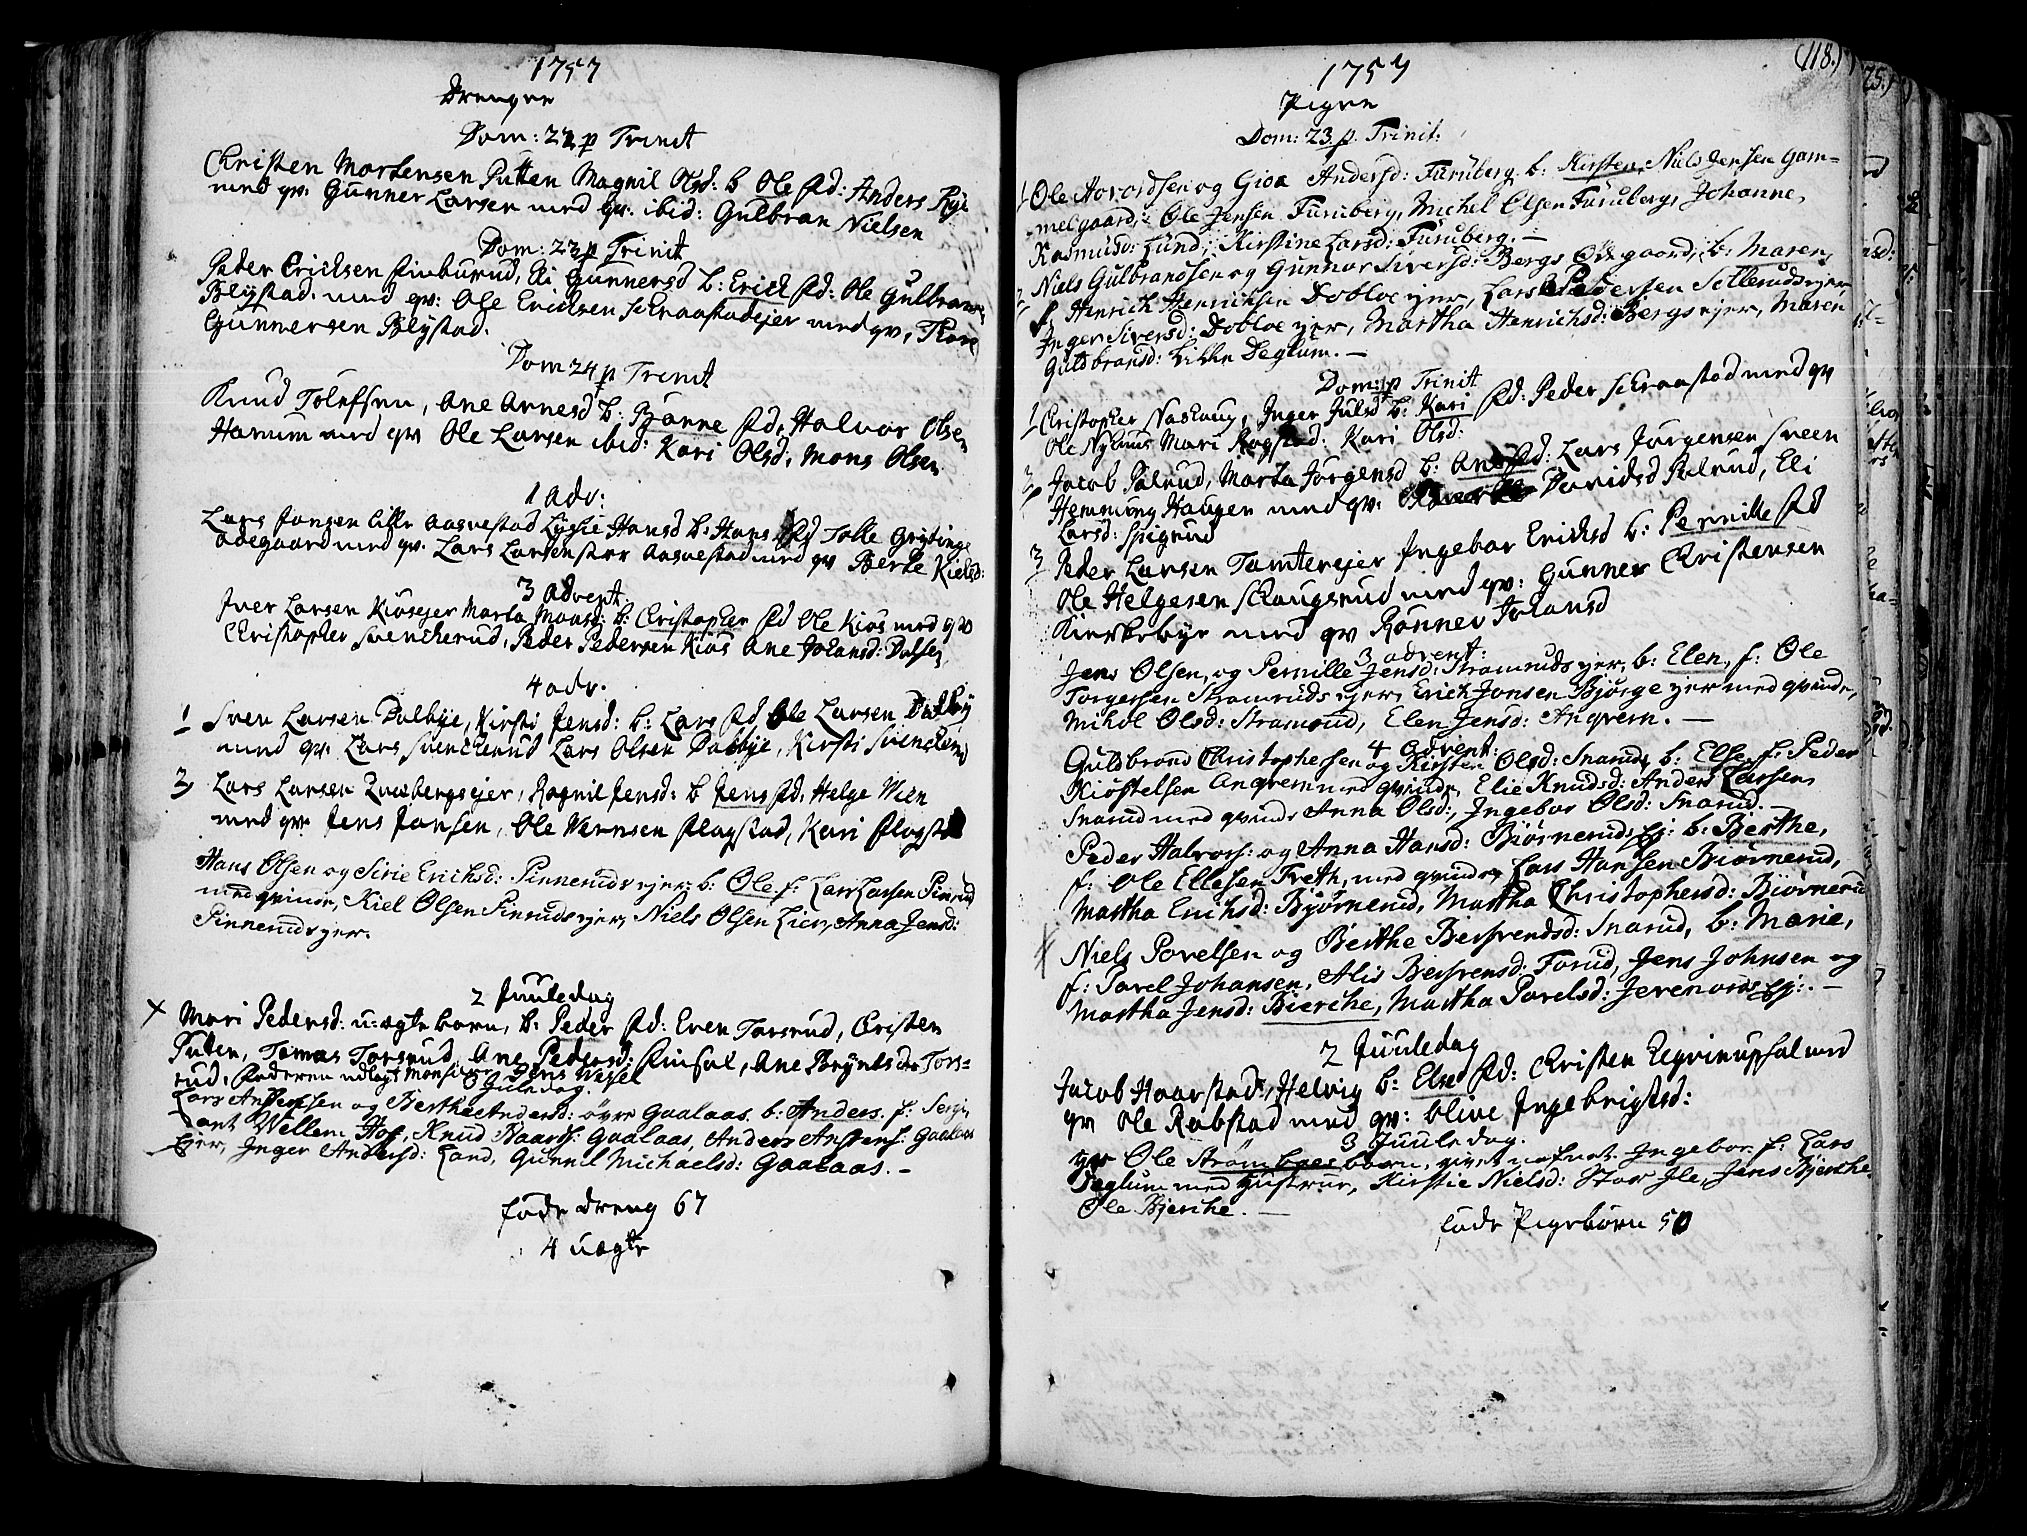 1757
Drenger
Dom: 22 p Trinit
Christen Mortensen Putten Magnil Olsd: b Ole fad: Anders Rye
med qv: Gunner Larsen med qv: ibid: Gulbran Nielsen
Dom: 23 p Trinit
Peder Ericksen Eli Gunnersd b: Erick fad: Ole Gulbransen
Blystad med qv: Ole Ericksen Skraastadejer med qv, Thore
Gunnersen Blystad.
Dom 24 p Trinit
Knud Tolefsen, Ane Arnesd b: Bjønne fad: Halvor Olsen
Harum med qv Ole Larsen ibid: Kari Olsd, Mons Olsen
1 Adv:
Lars Jonsen lille Aasvestad Lysie Hansd b: Hans fad Tolle Gryting
ødegaard med qv: Lars Larsen stor Aasvestad med qv Berte Kielsd:
3 Advent.
Iver Larsen Kiøsejer Marta Monsd: b: Christopher fad Ole Kiøs med qv
Christopher Svencherud, Peder Pedersen Kiøs Ane Johansd: Dalsen
4 adv.
1 Sven Larsen Dalbye, Kirsti Jensd: b: Lars fad Ole Larsen Dalby
med qv: Lars Svencherud Lars Olsen Dalbye, Kirsti Svencherud
2 Lars Larsen ejer, Ragnil Jensd: b Jens fad: Helge Wien
med qv: Jens Jansen, Ole Flagstad, Kari Flagstad
Hans Olsen og Sirie Erichsd: Pinnerudsejer b: Ole f: Lars Larsen Pinrud
med qvinde, Kiel Olsen Pinrudsejer, Niels Olsen Lier, Anna Jensd:
Pinnerudsejer.
2 Juuledag
x Mari Pedersd: u:ægte barn, b: Peder fad: Even Torsrud, Cristen
Puten, Tomas Torsrud, Ane Pedersd: Ane Bryntsdr Tors-
rud, Faderen udlagt Monsieur Jens Wessel
3 Juledag.
Lars Andersen og Berthe Andersd: øvre Gaalaas b: Anders f: Sergi
ant Wellem Hof, Knud Baards: Gaalaas, Anders Gaalaas
Ejer, Inger Andersd: Land, Gunnil Michaelsd: Gaalaas. -
føde dreng 67
4 uægte
(118.)
1757
Piger
Dom: 23 p. Trinit:
1 Ole Hovordsen og Gioa Andersd: Furuberg. b: Kirsten, Niels Jensen Gam-
melgaard, Ole Jensen Furuberg, Michel Olsen Furuberg, Johanne
Rasmusd: Lund, Kirstine Larsd: Furuberg. -
2 Niels Gulbrandsen og Gunnor Siversd: Bergs Ødegaard, b: Maren,
f: Hinrich Henrichsen Dobloe ejer, Lars Pedersen Setterudsejer,
Inger Siversd: Dobloe ejer, Martha Henrichsd: Bergsejer, Maren
Guldbransd: Lille Deglum. -
Dom: p Trinit
1 Christopher Naskaug, Inger Julsd b: Kari fad: Peder Skraastad med qv
Ole Nylund Mari Rogstad: Kari Olsd:
2 Jacob Palrud, Marta Jørgensd b: Ane fad: Lars Jørgensen Sveen
Hemming Haugen med qv: Davidsd Palrud, Eli
Larsd: Spigrud
3 Peder Larsen Tomterejer Ingebor Ericksd b: Pernille fad
Ole Helgesen Skougsrud med qv: Gunner Christensen
Kierkebye med qv Rønnev Johansd
3 advent:
Jens Olsen, og Pernille Jensd: Stramrudsejer, b: Elen, f: Ole
Torgersen Stramrudsejer, Erich Jonsen Bjørge ejer med qvinde,
Mihol Olsd: Stramrud, Elen Jensd: Angvern. -
4 Advent:
Guldbrand Christophersen og Kirsten Olsd: Snarud, b: Else, f: Peder
Kiøstelsen Angvern med qvinde, Elie Knudsd: Anders Larsen
Snarud med qvinde Anna Olsd:, Ingebor Olsd: Snarud. -
Peder Halvors: og Anna Hansd: Biørnerud, Ej: b: Bierthe,
f: Ole Ellefsen Freth, med qvinde, Lars Hansen Biørnerud,
Martha Erichsd: Bjørnerud, Martha Christophersd: Biørnerud
x Niels Povelsen og Berthe Berfvendsd: Snarud, b: Marie,
f: Povel Johansen, Alis Berfvensd: Forud, Jens Johnsen og
Martha Jensd: Bierche, Martha Povelsd: Ej: . -
2 Juuledag
Jacob Haarstad, Helvig b: Else fad: Christen med
qv Ole Robstad med qv: Olive Ingebrigtsd:
3 Juuledag.
Ole Strømboes barn, givet nafnet Ingebor f: Lars
Deglum med Hustrue, Kirstie Nielsd: Stor Ile, Jens Bjerche,
Ole Bjerche. -
føde Pigebørn 50